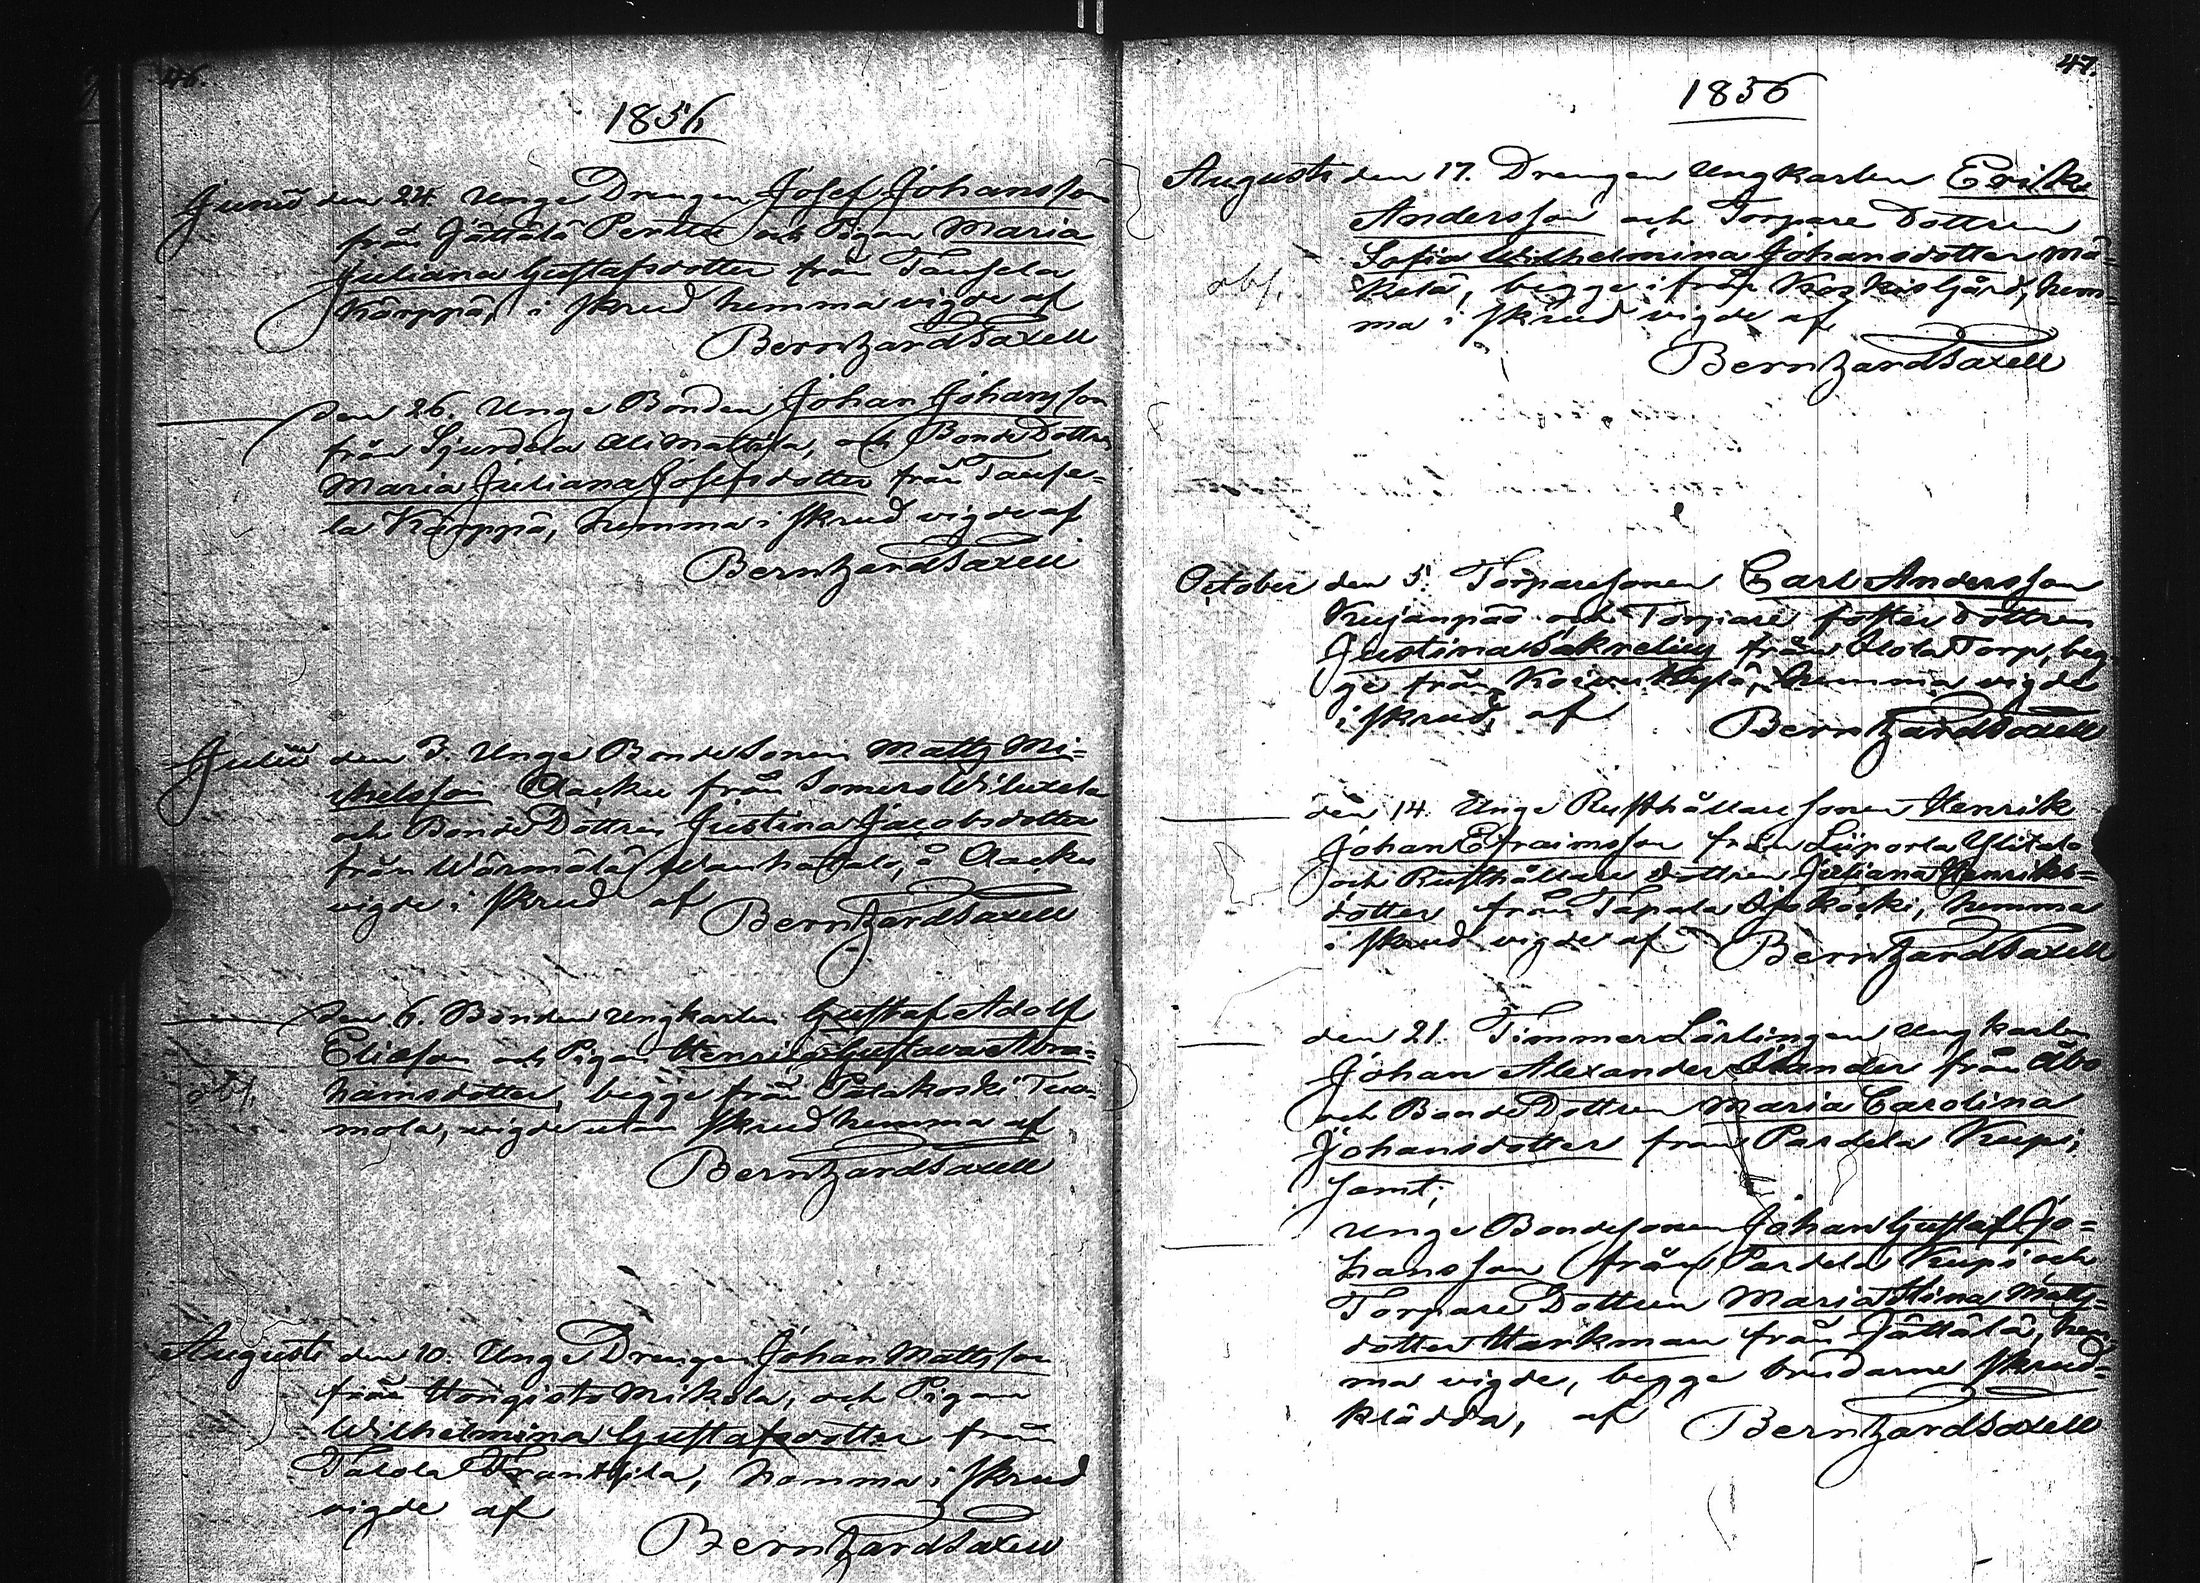 46.
1856
Junii den 24. Unge Drengen Josef Johansson
från Jättälä Penttu och Pigan Maria
Juliana Gustafsdotter från Taipsela
Kärppä, i skrud hemma vigde af
Berntzard Saxell
den 26. Unge Bonden Johan Johansson
från Sjurdela Ali Mattila, och Bonde Dottren
Maria Juliana Josefsdotter från Taipse=
la Kärppä, hemma i skrud vigde af
Berntzard Saxell
Julii den 3. Unge Bonde Sonen Matts Mi=
chelsson Aacku från Somero Wiluxela
och Bonde Dottren Justina Jacobsdotter
från Wärmälä Wanhatalo, å Aacku
vigde i skrud af
Berntzard Saxell
den 6. Bonden Ungkarlen Gustaf Adolf
Eliasson och Pigan Henrica Gustava Abra=
hamsdotter, begge från Palakoski Tuo=
mola, vigde utan skrud hemma af
obs.
Berntzard Saxell
Augusti den 10. Unge Drengen Johan Mattsson
från Hongisto Mikola, och Pigan
Wilhelmina Gustafsdotter från
Talola Franttila, hemma i skrud
vigde af
Berntzard Saxell
47.
1856
Augusti den 17. Drengen Ungkarlen Erik
Andersson och Torpare Dottren
Sofia Wilhelmina Johansdotter Mä=
kelä, begge ifrån Koskis Gård, hem=
ma i skrud vigde af
obs.
Berntzard Saxell
October den 5. Torparesonen Carl Andersson
Kujanpää och Torpare foster dottren
Justina Sakrelius från Alola Torp, beg=
ge från Koivukylä, hemma vigde
i skrud, af
Berntzard Saxell
den 14. Unge Rusthållare sonen Henrik
Johan Efraimsson från Liiporla Ylitalo
och Rusthållare dottren Juliana Henriks=
dotter från Tapala Ojakoski, hemma
i skrud vigde af Berntzard Saxell
den 21. Timmer Lärlingen Ungkarlen
Johan Alexander Stander från Åbo
och Bonde Dottren Maria Carolina
Johansdotter från Pardela Kupi;
samt;
Unge Bondesonen Johan Gustaf Jo=
hansson från Pardela Kupi och
Torpare Dottren Maria Stina Mats=
dotter Harkman från Jättälä, hem=
ma vigde, begge brudarne skrud=
klädda, af Berntzard Saxell